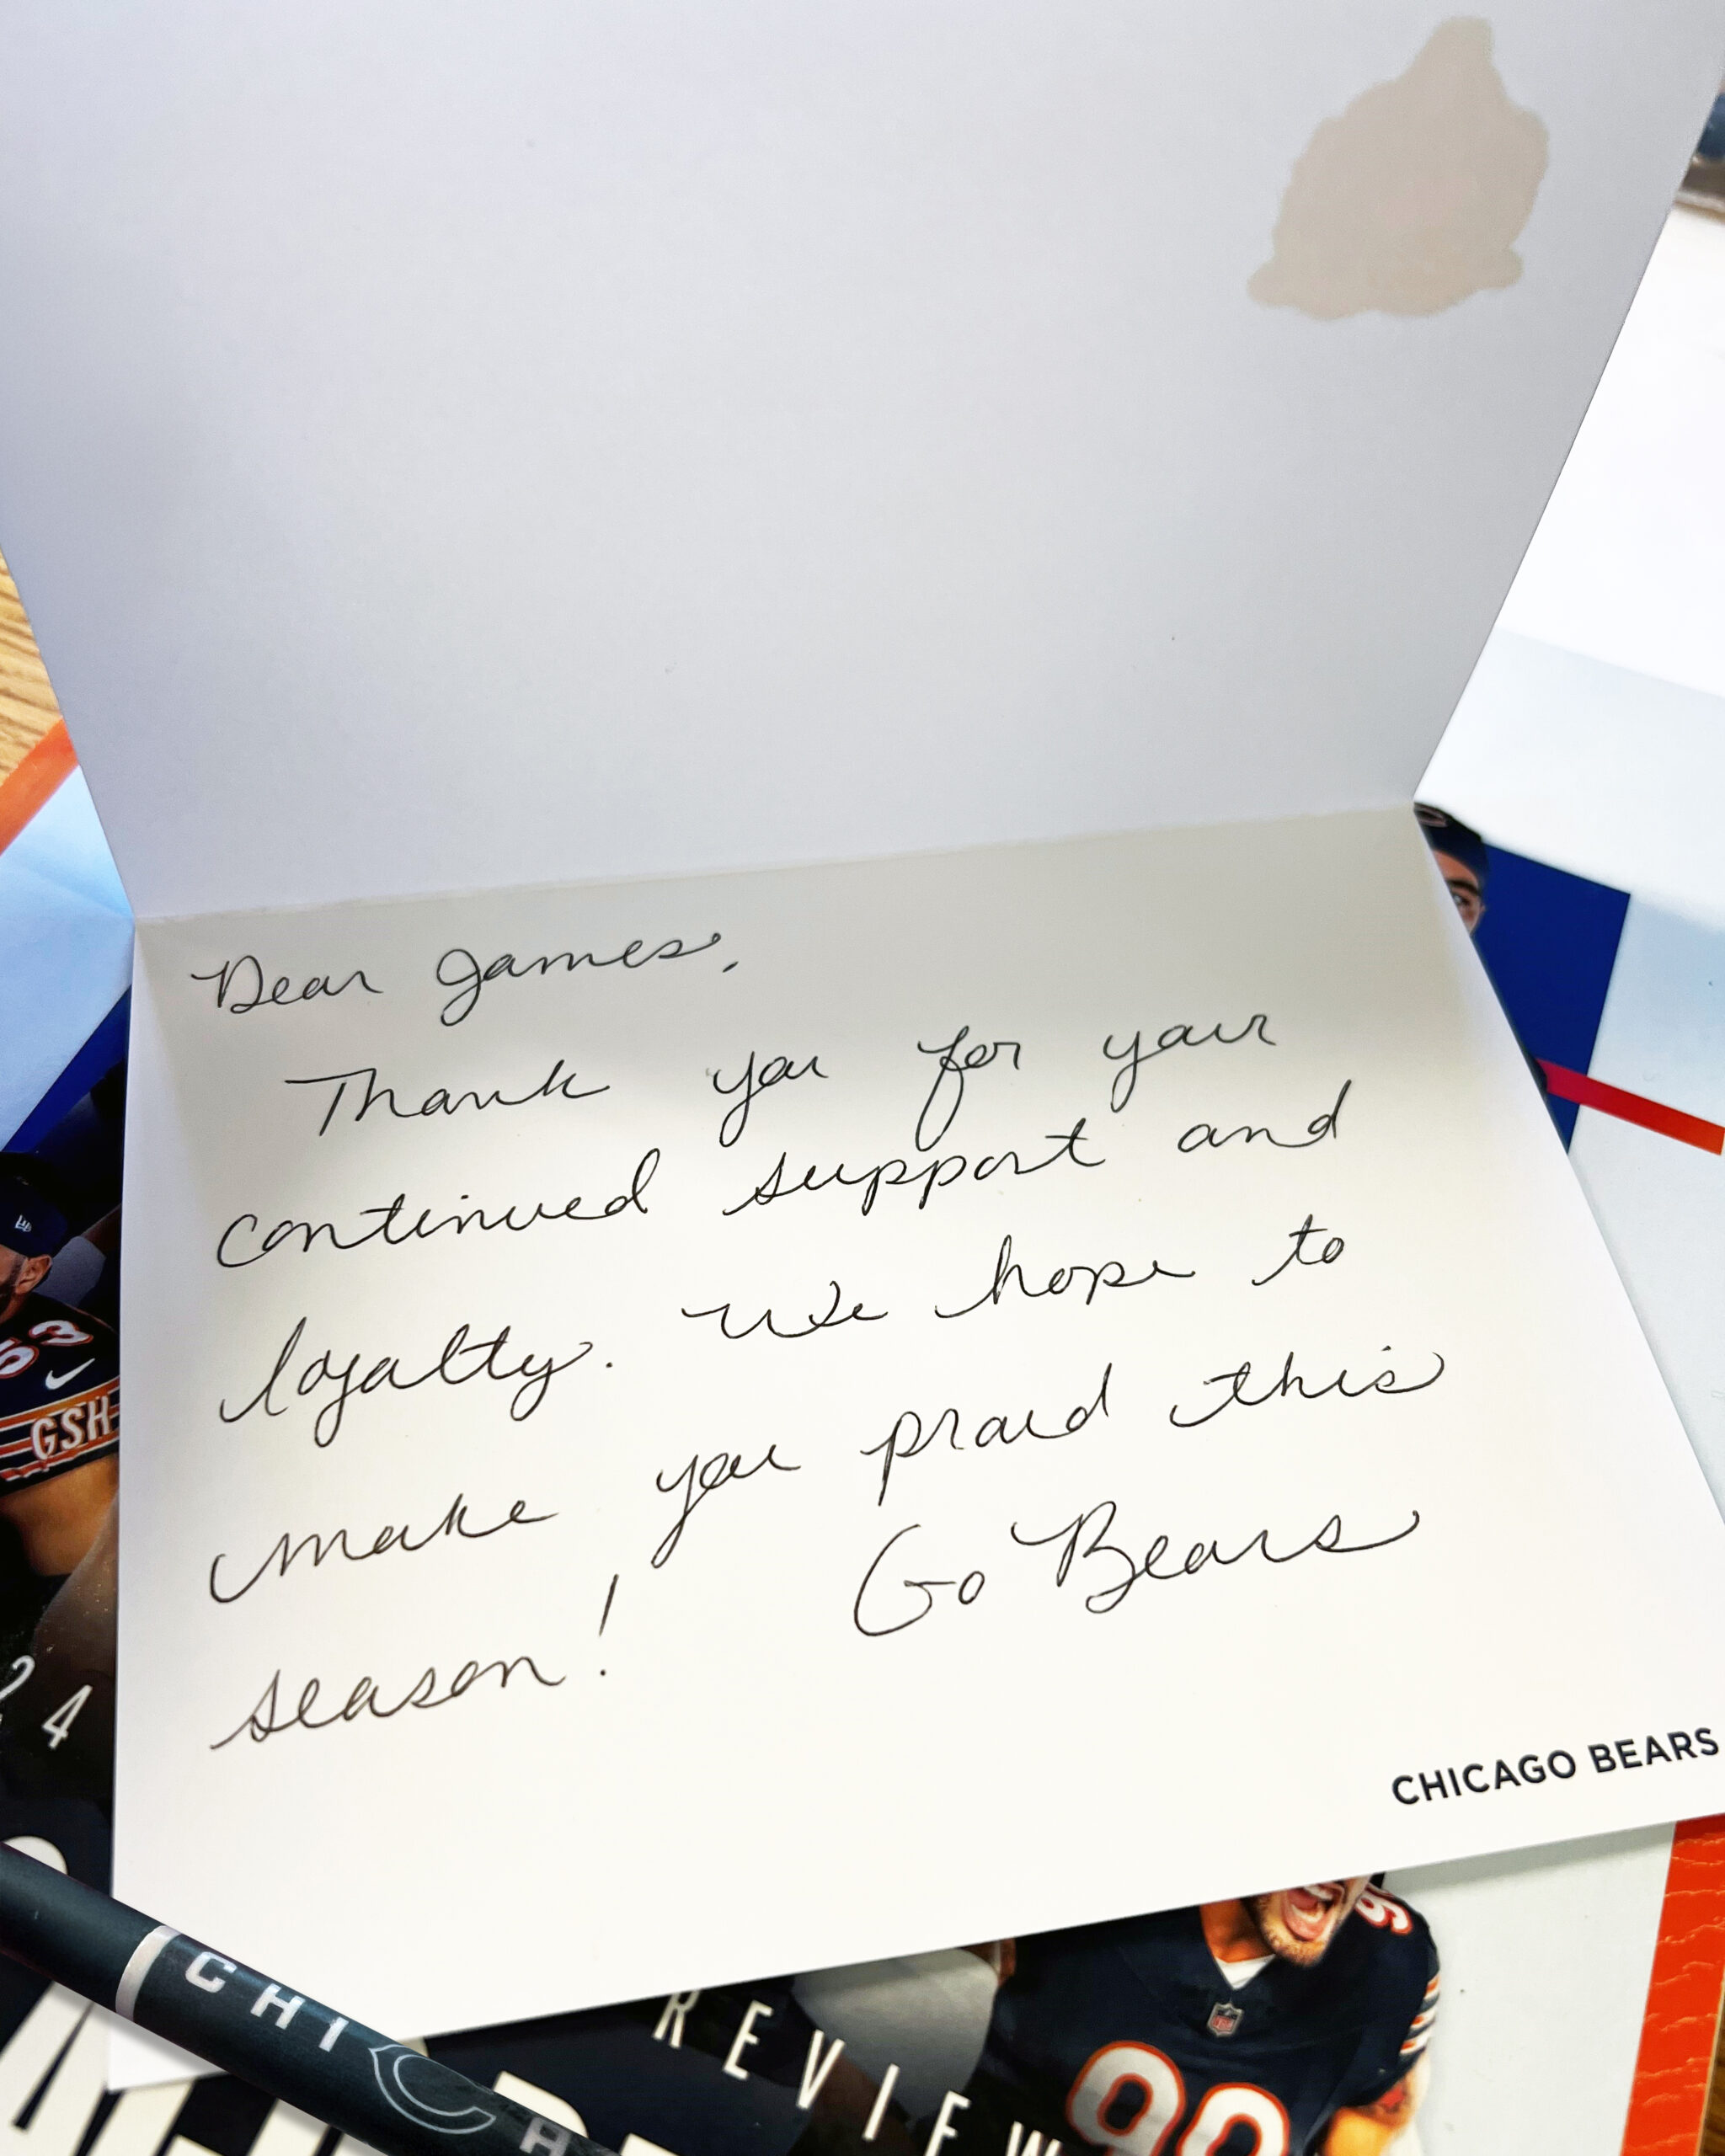 Dear James,
Thank you for your
continued support and
loyalty. We hope to
make you proud this
season! Go Bears
CHICAGO BEARS
53
GSH
24
CHI
REVIEW
98